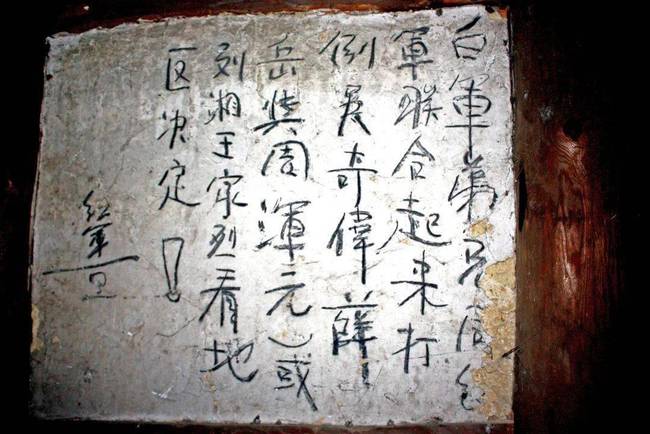 白軍弟兄同红
軍联合起来打
倒吴奇偉薛
岳與周渾元）或
刘湘王家烈看地
区决定！
红軍